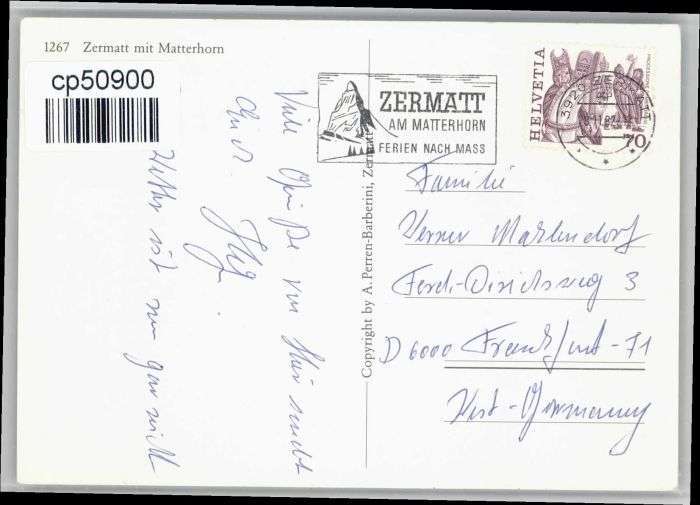 1267 Zermatt mit Matterhorn
cp50900
Viele Grüße von hier sendet
Wetter ist nun gar nicht
Copyright by A. Perren-Barberini, Zermatt
ZERMATT
AM MATTERHORN
FERIEN NACH MASS
HELVETIA
70
3920 ZERMATT
Familie
Werner Martendorf
Ferd.-Dirichsweg 3
D 6000 Frankfurt-71
West-Germany